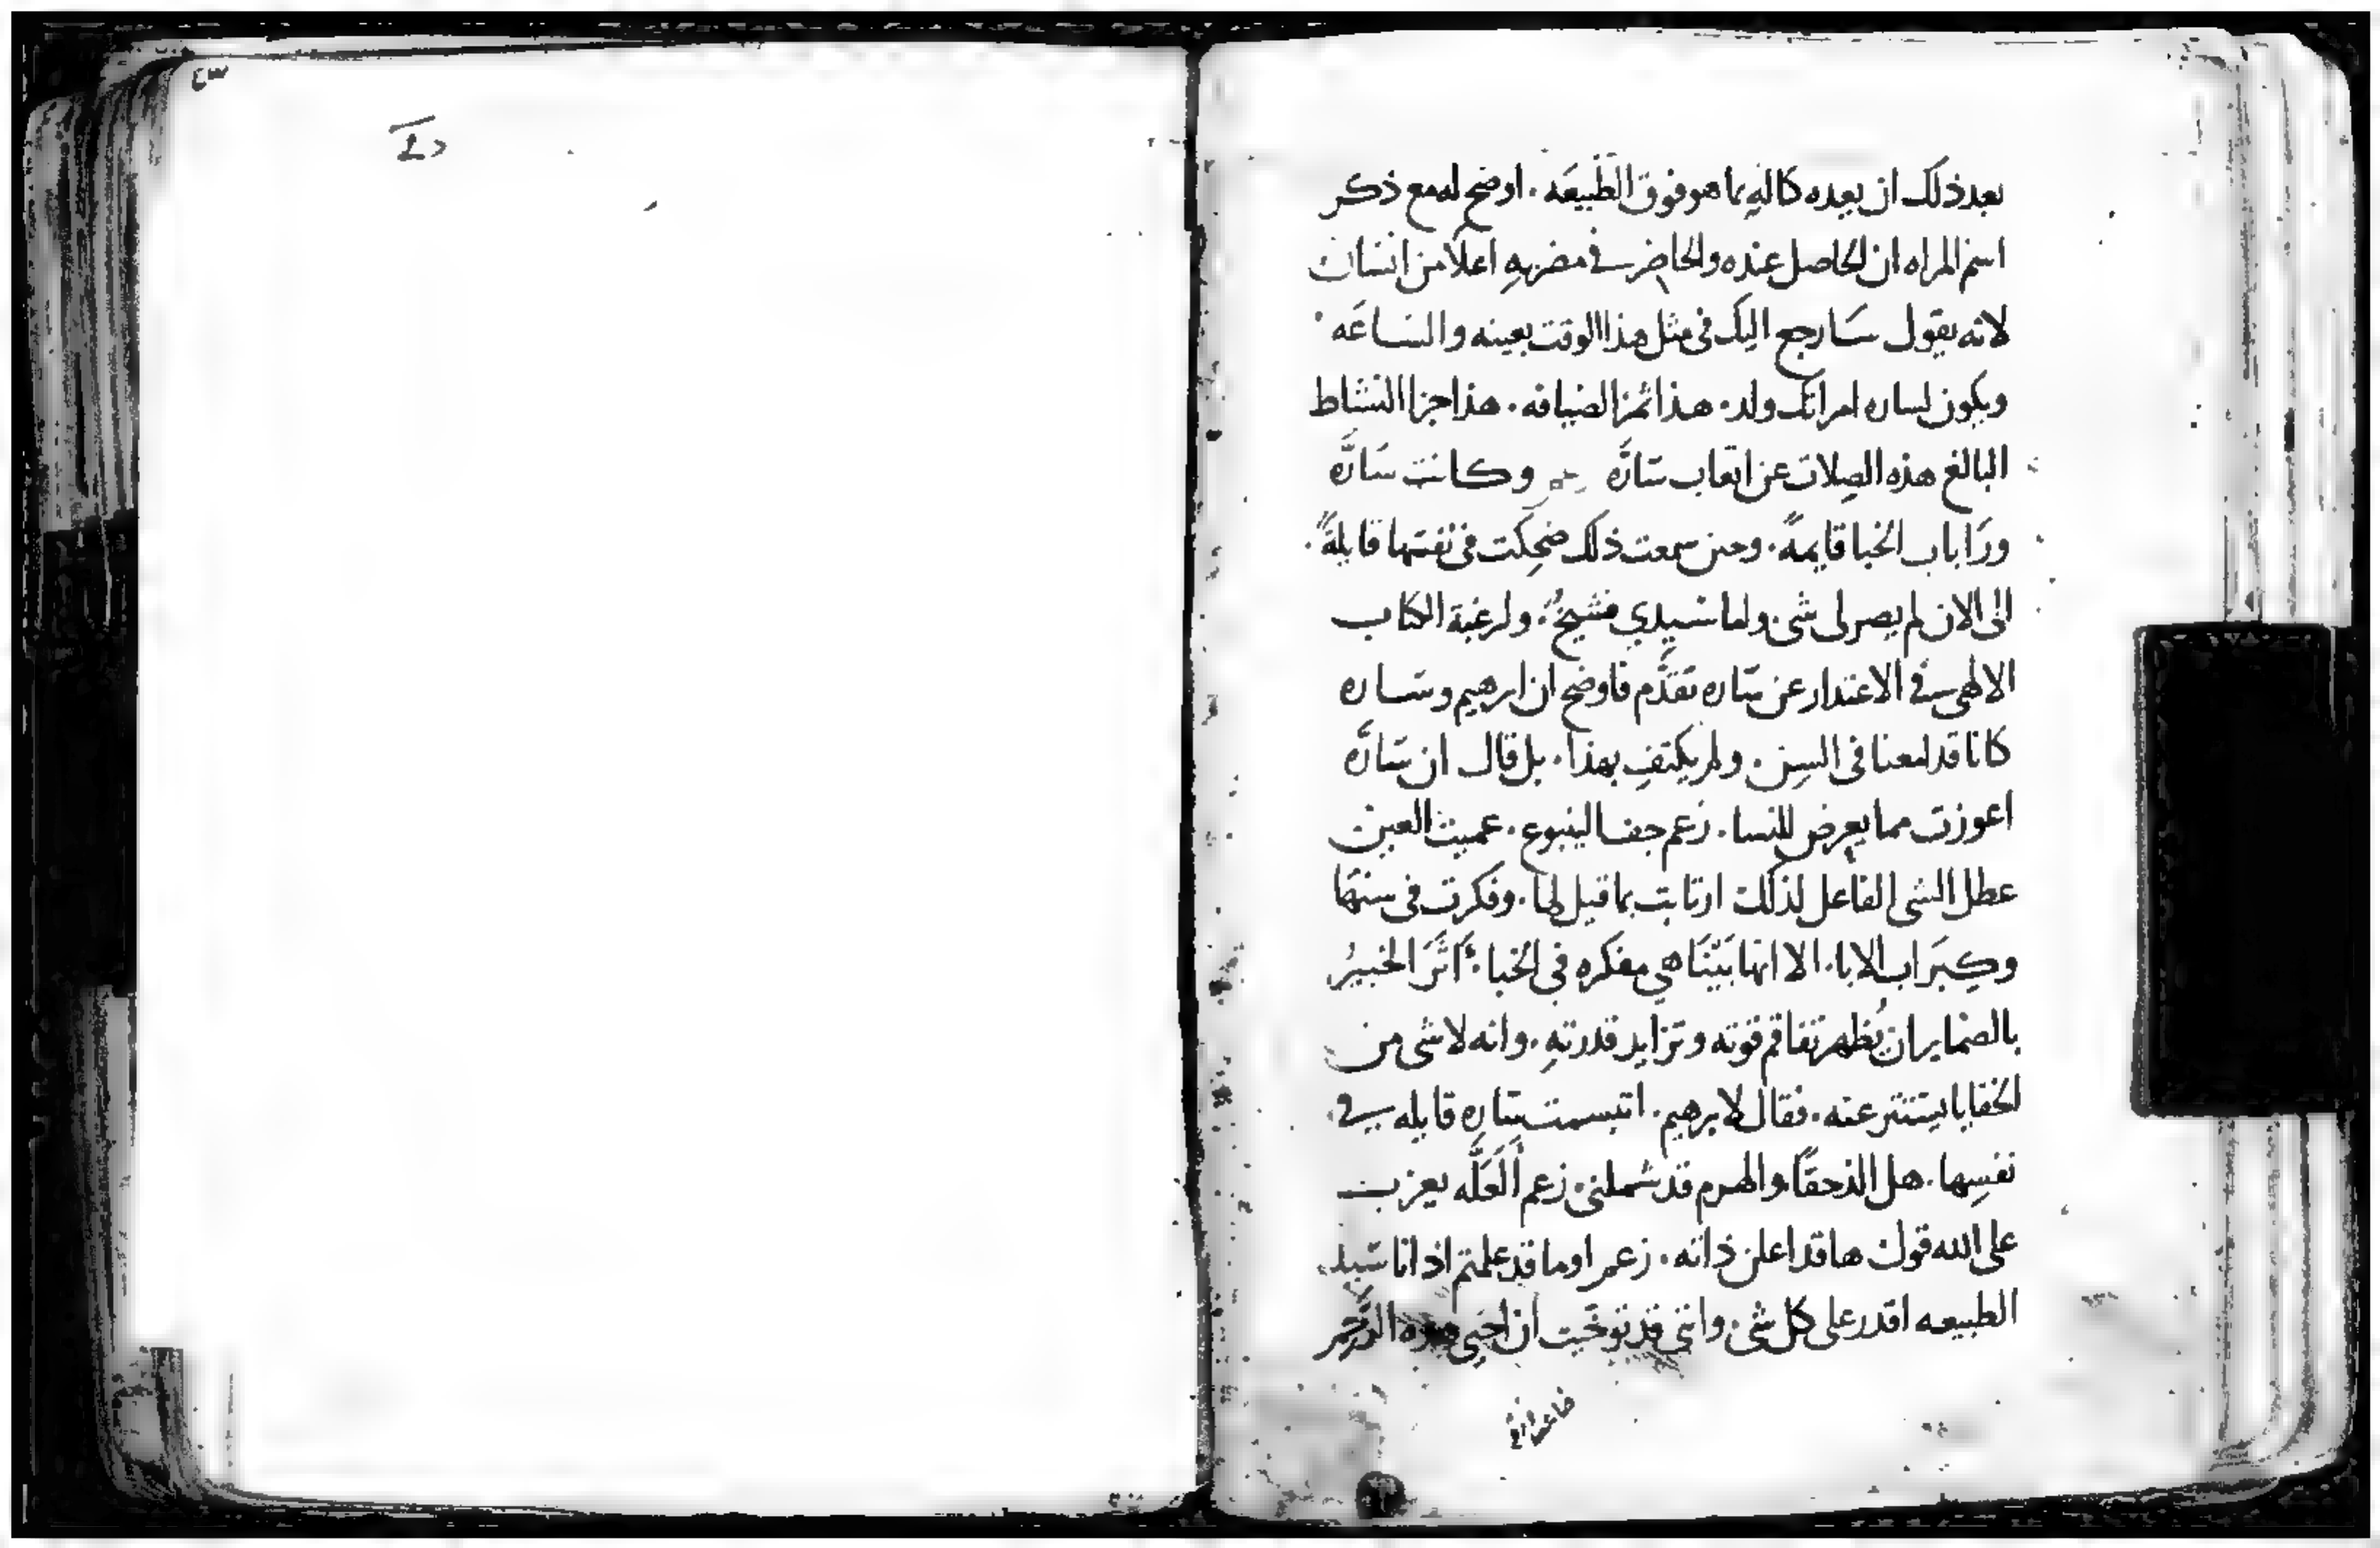 بعد ذلك ان بعده كاله بما هو فوق الطبيعه . اوضح له مع ذكر
اسم المراه ان الحاصل عنده والحاضر في مضربه اعلا من انسان
لانه يقول سارجع اليك في مثل هذا الوقت بعينه والساعه
ويكون لساره امراتك ولد . هذا ثمن الضيافه . هذا جزا النشاط
البالغ هذه الصلات عن اتعاب سارّه وكانت سارّه
ورا باب الخبا قايمةً . وحين سمعت ذلك ضحكت في نفسها قايلةً .
الى الان لم يصر لى شى . واما سيدي فشيخٌ . ولرغبة الكتاب
الالهى في الاعتدار عن ساره تقدَّم فاوضح ان ابرهيم وساره
كانا قد امعنا فى السِن . ولم يكتفِ بهذا . بل قال ان سارّه
اعوزت مما يعرض للنسا . زعم جف الينبوع . عميت العين
عطل الشى الفاعل لذلك ارتابت بما قيل لها . وفكرت فى سنها
وكِبَر اب الابا . الا انها بَيْنَا هي مفكره في الخبا . اثَرَ الخبيرُ
بالضماير ان يُظهر تفاقم قوته وتزايد قدرتهِ . وانه لا شى من
الخفايا يستتر عنه . فقال لابرهيم . اتبسمت ساره قايله في
نفسِها . هل الذ حقًا والهرم قد شملنى . زعم اَلَعَلَّه يعزب
على الله قول ها قد اعلن ذاته . زعم اوما قد علمتم اذ انا سيد
الطبيعه اقدر على كل شى . واننى قد توخيت ان احيى هذه الرحم